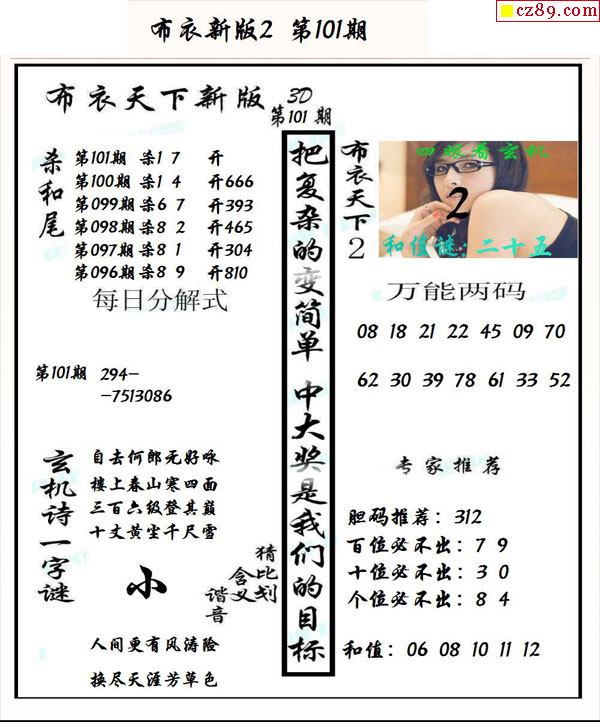 cz89.com
布衣新版2 第101期
布衣天下新版 3D
第101期
杀和尾
第101期 杀1 7 开
第100期 杀1 4 开666
第099期 杀6 7 开393
第098期 杀8 2 开465
第097期 杀8 1 开304
第096期 杀8 9 开810
每日分解式
第101期 294-
-7513086
玄机诗一字谜
自去何郎无好咏
楼上春山寒四面
三百六级登其巅
十丈黄尘千尺雪
小
猜比划
含义
谐音
人间更有风涛险
换尽天涯芳草色
把复杂的变简单 中大奖是我们的目标
布衣天下2
四眼看玄机
2
和值谜:二十五
万能两码
08 18 21 22 45 09 70
62 30 39 78 61 33 52
专家推荐
胆码推荐: 312
百位必不出: 7 9
十位必不出: 3 0
个位必不出: 8 4
和值: 06 08 10 11 12